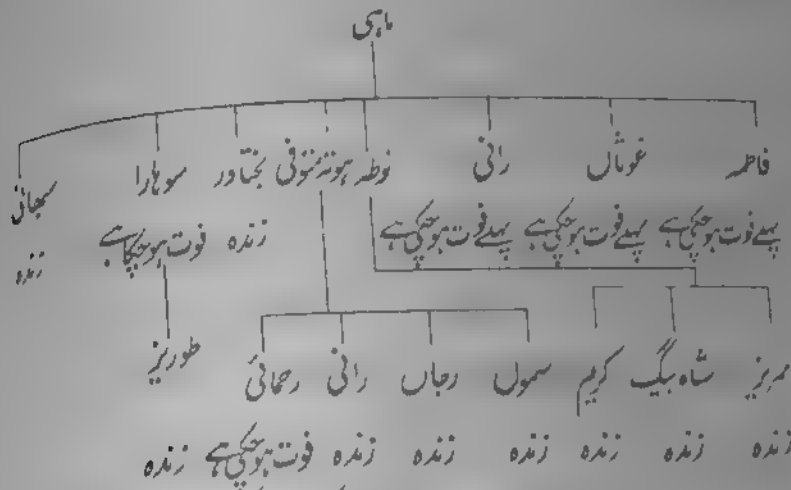 ماہی
فاطمہ غوثاں رانی نوطہ ہوتہ متوفی بختاور سوہارا سبھائی
پہلے فوت ہوچکی ہے پہلے فوت ہوچکی ہے پہلے فوت ہوچکی ہے زندہ فوت ہوچکا ہے زندہ
مریز شاہ بیگ کریم سمول رجاں رانی رحمائی طوریز
زندہ زندہ زندہ زندہ زندہ زندہ فوت ہوچکی ہے زندہ